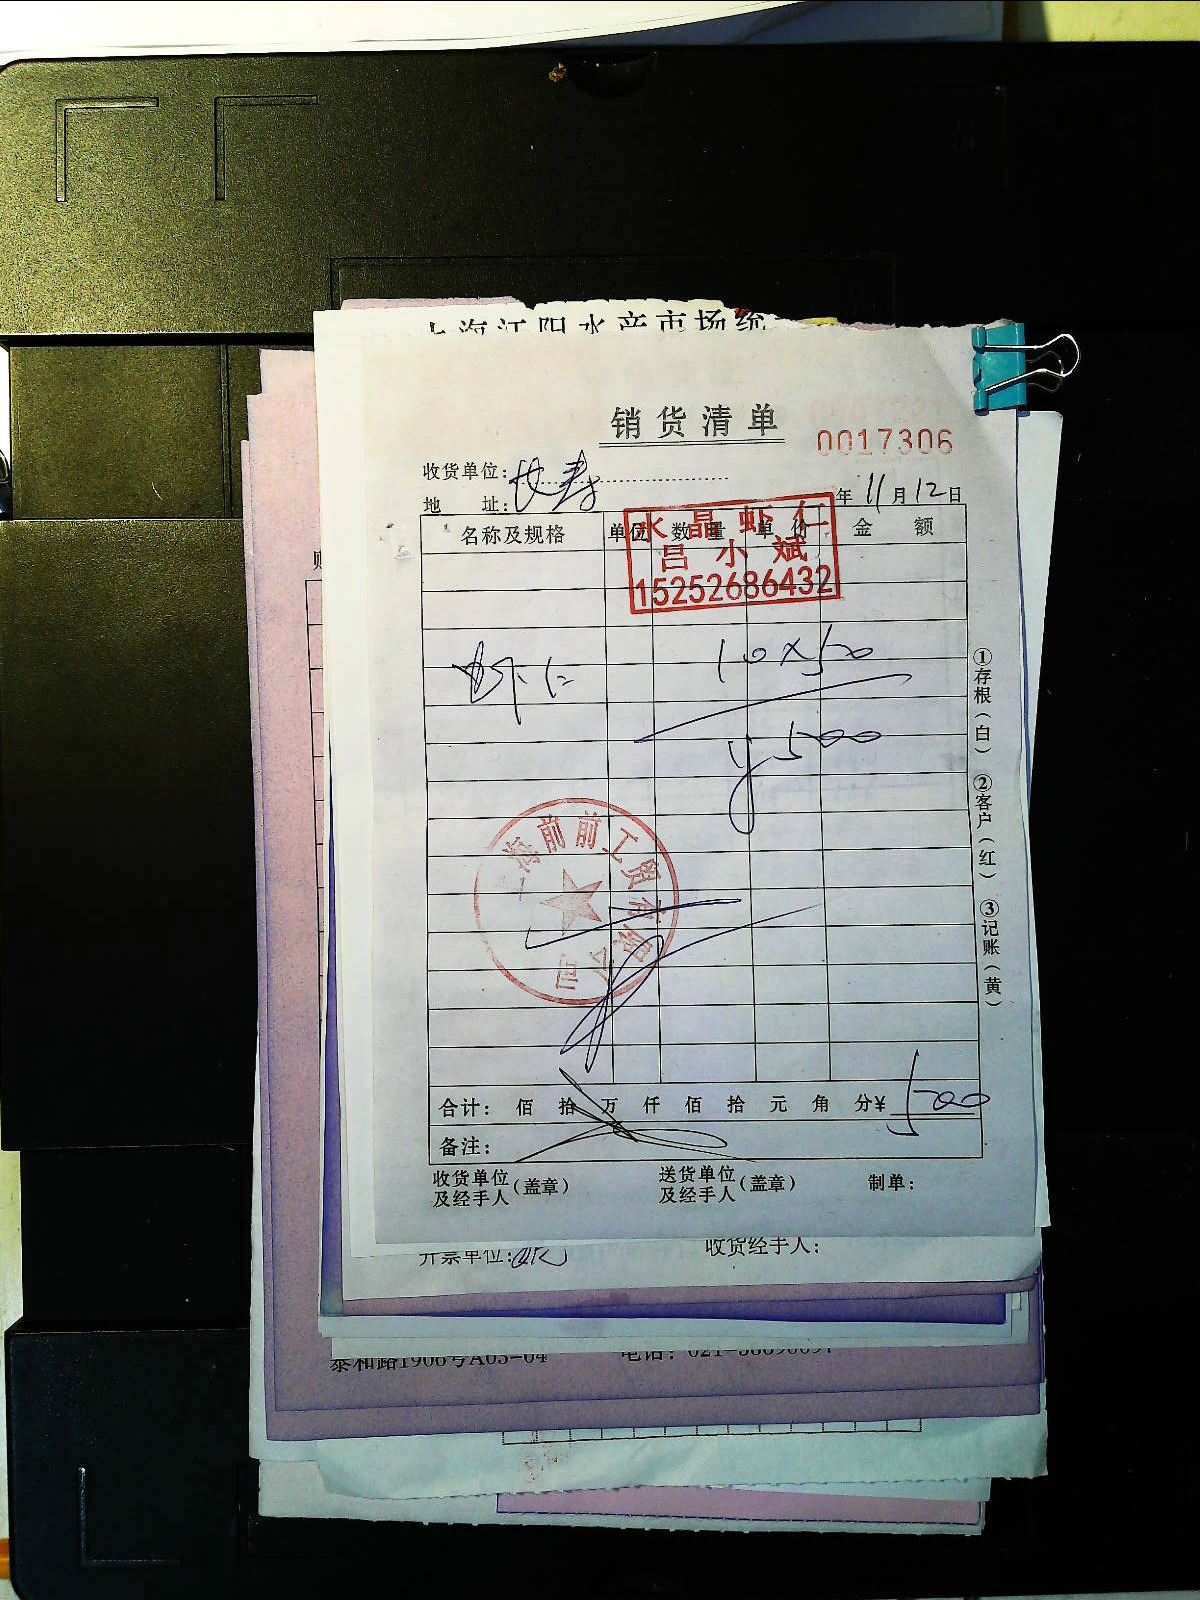 上海江阳水产市场统
销货清单
0017306
收货单位:
地 址:
年 11 月 12 日
名称及规格 单位 数量 单价 金额
水晶虾仁
吕小斌
15252686432
虾仁 10×50
¥500
上海前前工贸有限公司
合计: 佰 拾 万 仟 佰 拾 元 角 分¥ 500
备注:
收货单位及经手人(盖章) 送货单位及经手人(盖章) 制单:
①存根(白) ②客户(红) ③记账(黄)
开票单位: 收货经手人:
泰和路1908号A03-04 电话: